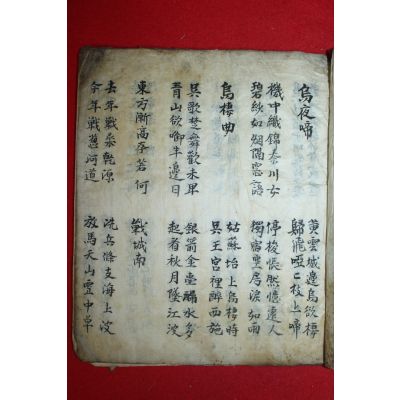 烏夜啼
黃雲城邊烏欲棲
歸飛啞二枝上啼
機中織錦秦川女
碧紗如烟隔窓語
停梭悵然憶遠人
獨宿空房淚如雨
烏棲曲
姑蘇坮上烏棲時
吳王宮裡醉西施
吳歌楚舞歡未畢
青山欲啣半邊日
銀箭金壺漏水多
起看秋月墜江波
東方漸高奈若何
戰城南
去年戰桑乾源
今年戰葱河道
洗兵條支海上波
放馬天山雪中草